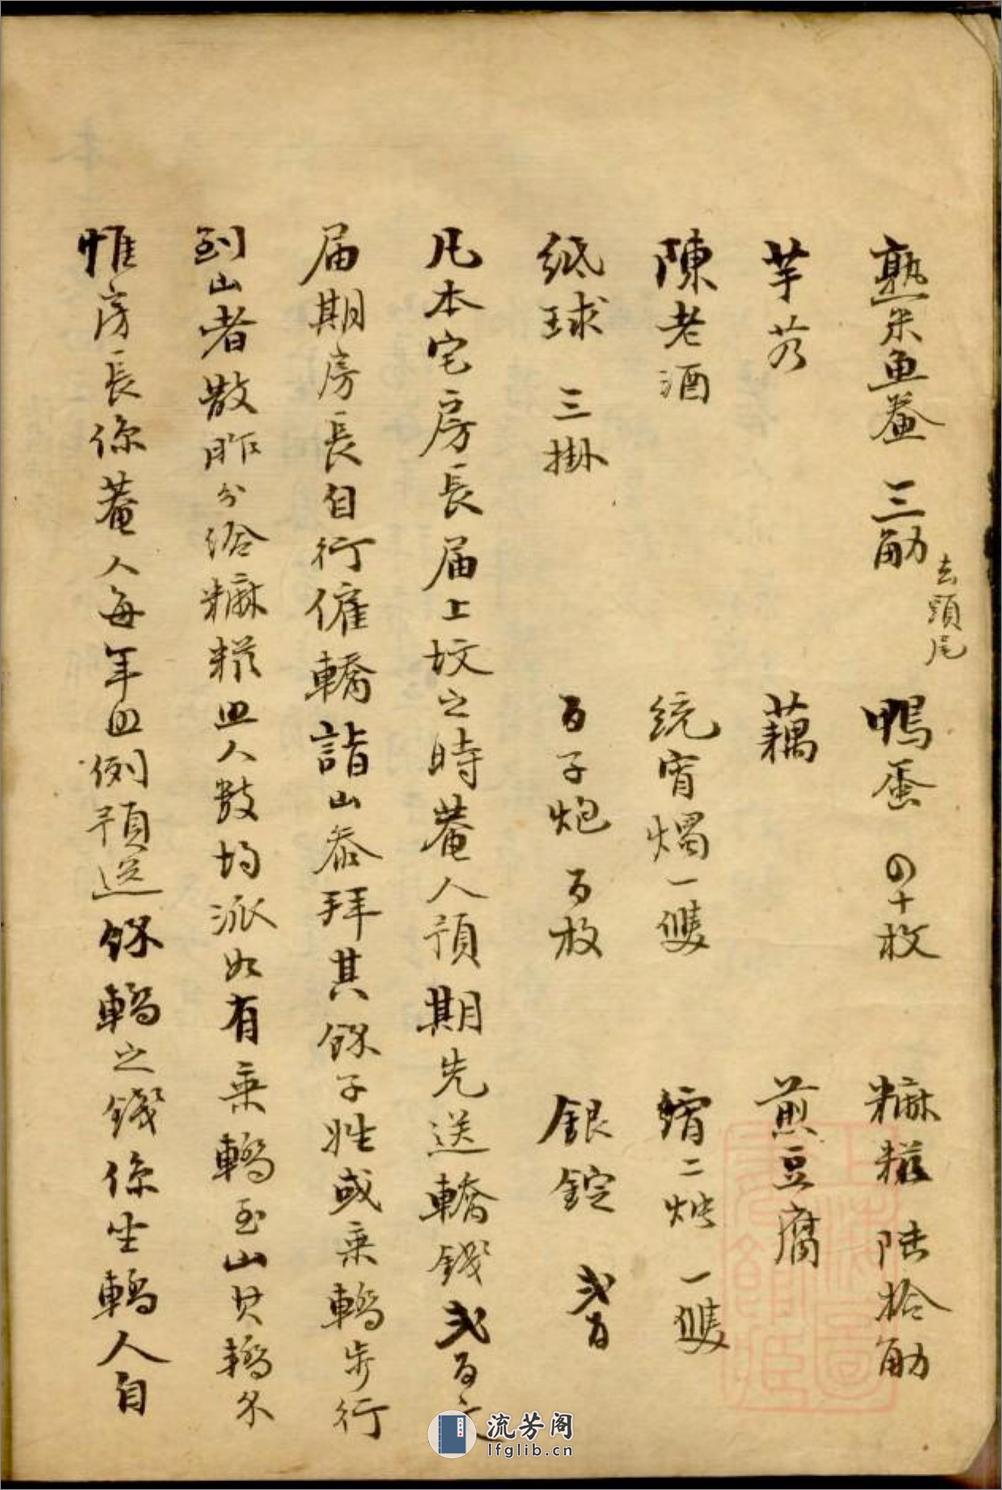 熟米魚鯗 三觔 去頭尾 鴨蛋 四十枚 糰糍 陸拾觔
芋艿 藕 煎豆腐
陳老酒 統宵燭一雙 二炪 一雙
紙球 三掛 百子炮 百枚 銀錠 貳百
凡本宅房長届上坟之時菴人預期先送轎錢貳百文
届期房長自行僱轎詣山叅拜其餘子姓或乘轎步行
到山者散胙分給糰糍照人數均派如有乘轎至山其轎不
惟房長係菴人每年照例預送餘轎之錢係坐轎人自
流芳阁
lfglib.cn